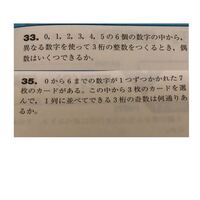 33. 0, 1, 2, 3, 4, 5の6個の数字の中から,
異なる数字を使って3桁の整数をつくるとき, 偶
数はいくつできるか.
35. 0から6までの数字が1つずつかかれた7
枚のカードがある. この中から3枚のカードを選
んで, 1列に並べてできる3桁の奇数は何通りあ
るか.